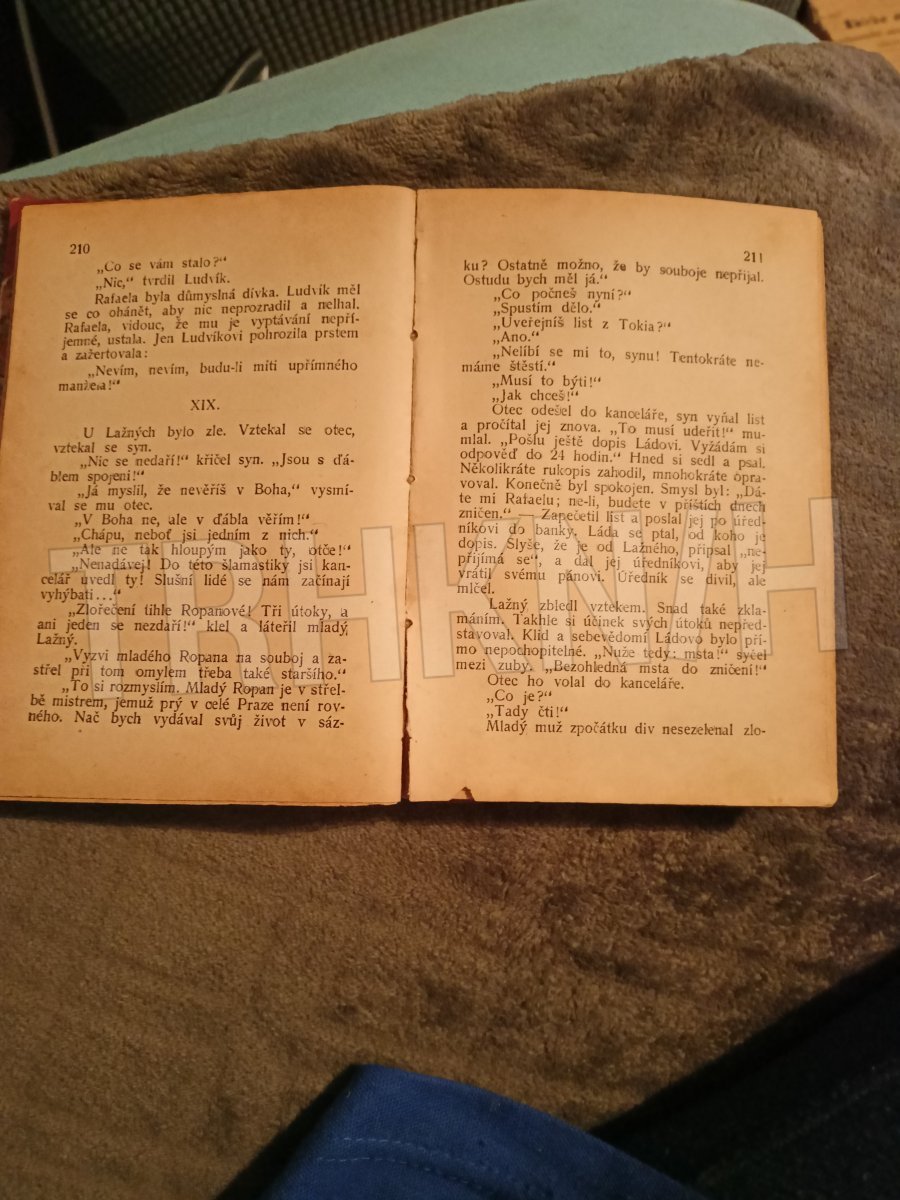 210
„Co se vám stalo?“
„Nic,“ tvrdil Ludvík.
Rafaela byla důmyslná dívka. Ludvík měl
se co oháněť, aby nic neprozradil a nelhal.
Rafaela, vidouc, že mu je vyptávání nepří-
jemné, ustala. Jen Ludvíkovi pohrozila prstem
a zažertovala:
„Nevím, nevím, budu-li míti upřímného
manžela!“
XIX.
U Lažných bylo zle. Vztekal se otec,
vztekal se syn.
„Nic se nedaří!“ křičel syn. „Jsou s ďá-
blem spojeni!“
„Já myslil, že nevěříš v Boha,“ vysmí-
val se mu otec.
„V Boha ne, ale v ďábla věřím!“
„Chápu, neboť jsi jedním z nich.“
„Ale ne tak hloupým jako ty, otče!“
„Nenadávej! Do této šlamastiky jsi kan-
celář uvedl ty! Slušní lidé se nám začínají
vyhýbati...“
„Zlořečení tihle Ropanové! Tři útoky, a
ani jeden se nezdaří!“ klel a láteřil mladý
Lažný.
„Vyzvi mladého Ropana na souboj a za-
střel při tom omylem třeba také staršího.“
„To si rozmyslím. Mladý Ropan je v střel-
bě mistrem, jemuž prý v celé Praze není rov-
ného. Nač bych vydával svůj život v sáz-
211
ku? Ostatně možno, že by souboje nepřijal.
Ostudu bych měl já.“
„Co počneš nyní?“
„Spustím dělo.“
„Uveřejníš list z Tokia?“
„Ano.“
„Nelíbí se mi to, synu! Tentokráte ne-
máme štěstí.“
„Musí to býti!“
„Jak chceš!“
Otec odešel do kanceláře, syn vyňal list
a pročítal jej znova. „To musí udeřit!“ mu-
mlal. „Pošlu ještě dopis Ládovi. Vyžádám si
odpověď do 24 hodin.“ Hned si sedl a psal.
Několikráte rukopis zahodil, mnohokráte opra-
voval. Konečně byl spokojen. Smysl byl: „Dá-
te mi Rafaelu; ne-li, budete v příštích dnech
zničen.“ — Zapečetil list a poslal jej po úřed-
níkovi do banky. Láda se ptal, od koho je
dopis. Slyše, že je od Lažného, připsal „ne-
přijímá se“, a dal jej úředníkovi, aby jej
vrátil svému pánovi. Úředník se divil, ale
mlčel.
Lažný zbledl vztekem. Snad také zkla-
máním. Takhle si účinek svých útoků nepřed-
stavoval. Klid a sebevědomí Ládovo bylo pří-
mo nepochopitelné. „Nuže tedy: msta!“ syčel
mezi zuby. „Bezohledná msta do zničení!“
Otec ho volal do kanceláře.
„Co je?“
„Tady čti!“
Mladý muž zpočátku div nesezelenal zlo-